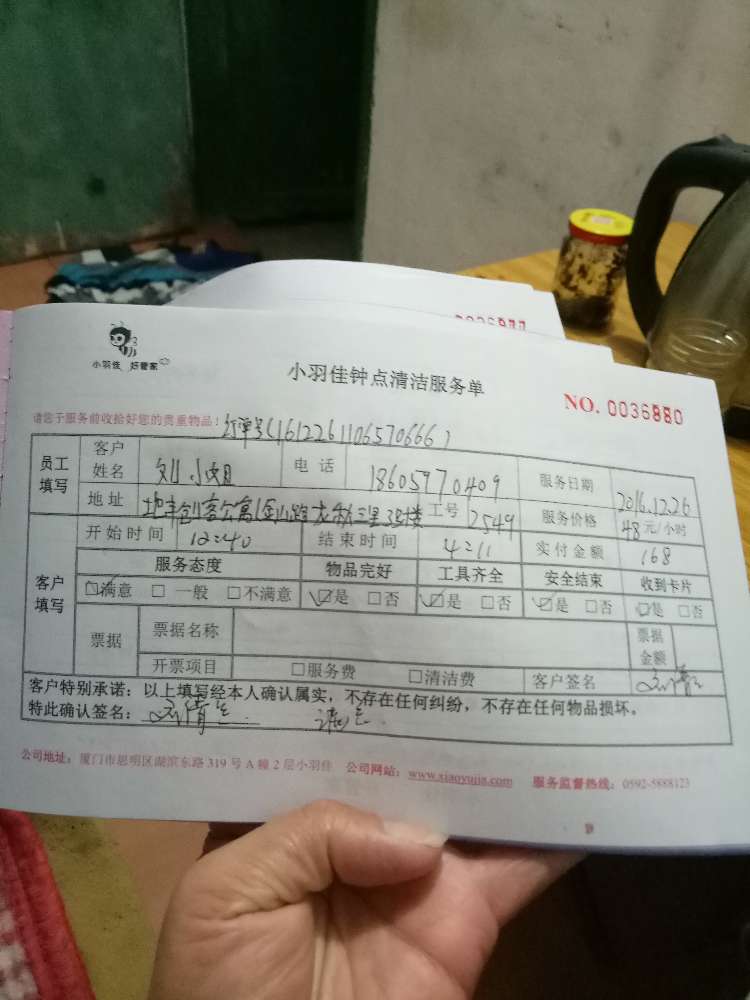 0036877
小羽佳 好管家
小羽佳钟点清洁服务单
NO. 0036880
请您于服务前收拾好您的贵重物品！订单号(1612261106570666)
员工填写 客户姓名 刘小姐 电话 18605970409 服务日期 2016.12.26
地址 龙秋三里 工号 2549 服务价格 48元/小时
客户填写 开始时间 12:40 结束时间 4:11 实付金额 168
服务态度 物品完好 工具齐全 安全结束 收到卡片
☑满意 □一般 □不满意 ☑是 □否 ☑是 □否 ☑是 □否 ☑是 □否
票据 票据名称 票据金额
开票项目 □服务费 □清洁费 客户签名
客户特别承诺：以上填写经本人确认属实，不存在任何纠纷，不存在任何物品损坏。
特此确认签名：
公司地址：厦门市思明区湖滨东路319号A幢2层小羽佳 公司网站：www.xiaoyujia.com 服务监督热线：0592-5888123